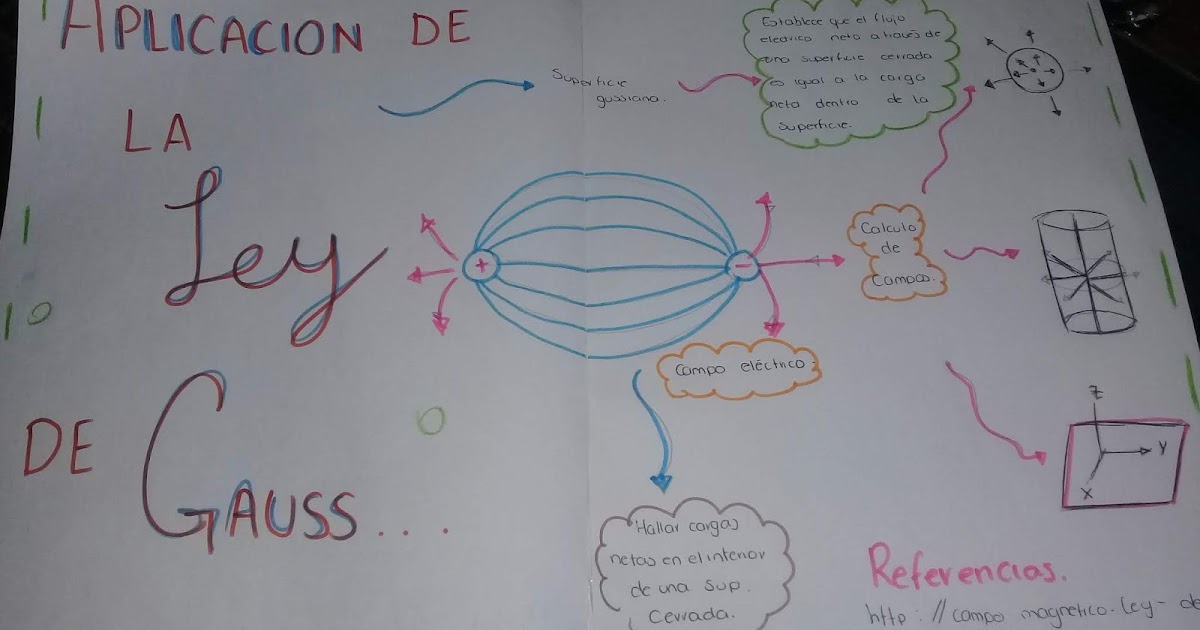 APLICACION DE
LA
Ley
DE GAUSS...
Superficie
gussiana.
Establece que el flujo
electrico neto a través de
una superficie cerrada
es igual a la carga
neta dentro de la
superficie.
+
-
Calculo
de
Campos.
Campo eléctrico.
Hallar cargas
netas en el interior
de una sup.
Cerrada.
Z
Y
X
Referencias.
http://campo magnetico.ley-de